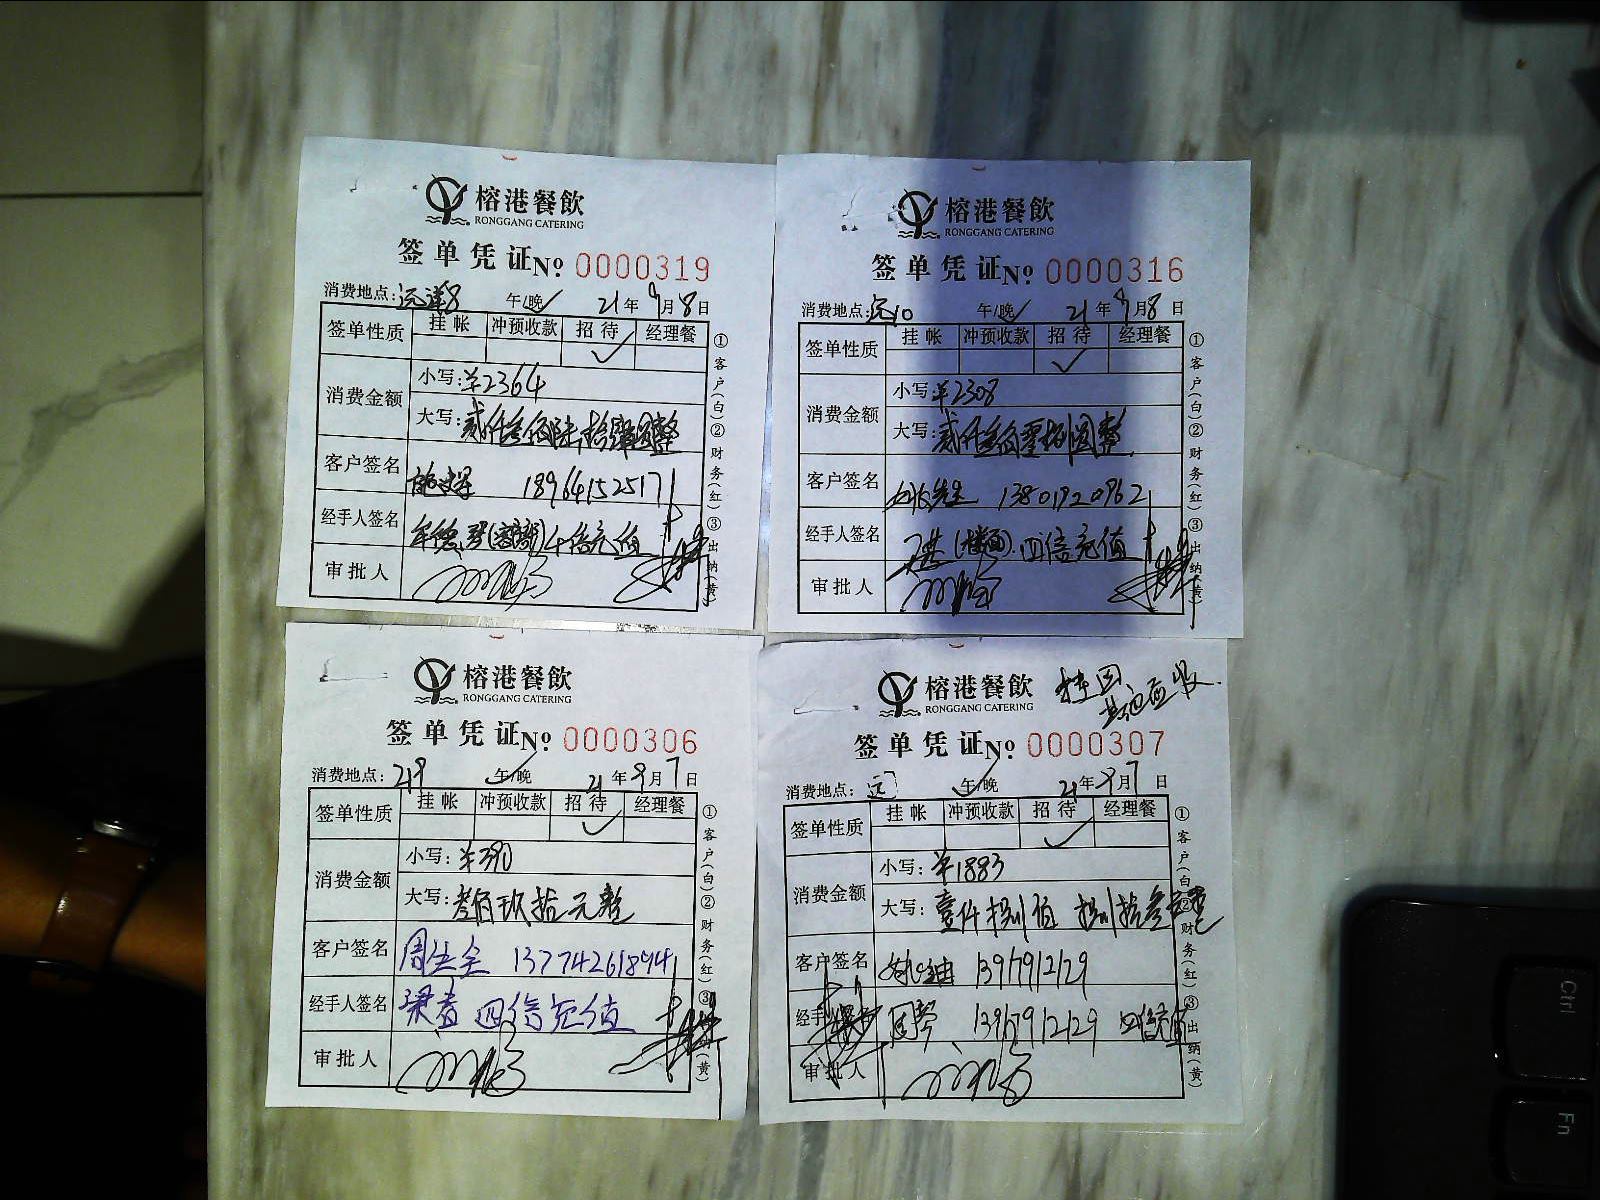 榕港餐飲
RONGGANG CATERING
签单凭证 No 0000319
消费地点: 远洋8 午/晚 21年9月8日
签单性质 挂帐 冲预收款 招待 经理餐
消费金额 小写: ¥2364
大写: 贰仟叁佰陆拾肆圆整
客户签名 18964152517
经手人签名 十倍充值
审批人
①客户(白)②财务(红)③出纳(黄)
榕港餐飲
RONGGANG CATERING
签单凭证 No 0000316
消费地点: 远10 午/晚 21年9月8日
签单性质 挂帐 冲预收款 招待 经理餐
消费金额 小写: ¥2308
大写: 贰仟叁佰零捌圆整
客户签名 先生 13801920962
经手人签名 (楼面) 四倍充值
审批人
①客户(白)②财务(红)③出纳(黄)
榕港餐飲
RONGGANG CATERING
签单凭证 No 0000306
消费地点: 219 午/晚 21年9月7日
签单性质 挂帐 冲预收款 招待 经理餐
消费金额 小写: ¥390
大写: 叁佰玖拾元整
客户签名 周 13774261894
经手人签名 梁 四倍充值
审批人
①客户(白)②财务(红)③出纳(黄)
榕港餐飲
RONGGANG CATERING
签单凭证 No 0000307
消费地点: 远7 午/晚 21年9月7日
签单性质 挂帐 冲预收款 招待 经理餐
消费金额 小写: ¥1883
大写: 壹仟捌佰捌拾叁元整
客户签名 13917912129
经手人签名 13917912129 四倍充值
审批人
①客户(白)②财务(红)③出纳(黄)
Ctrl
Fn